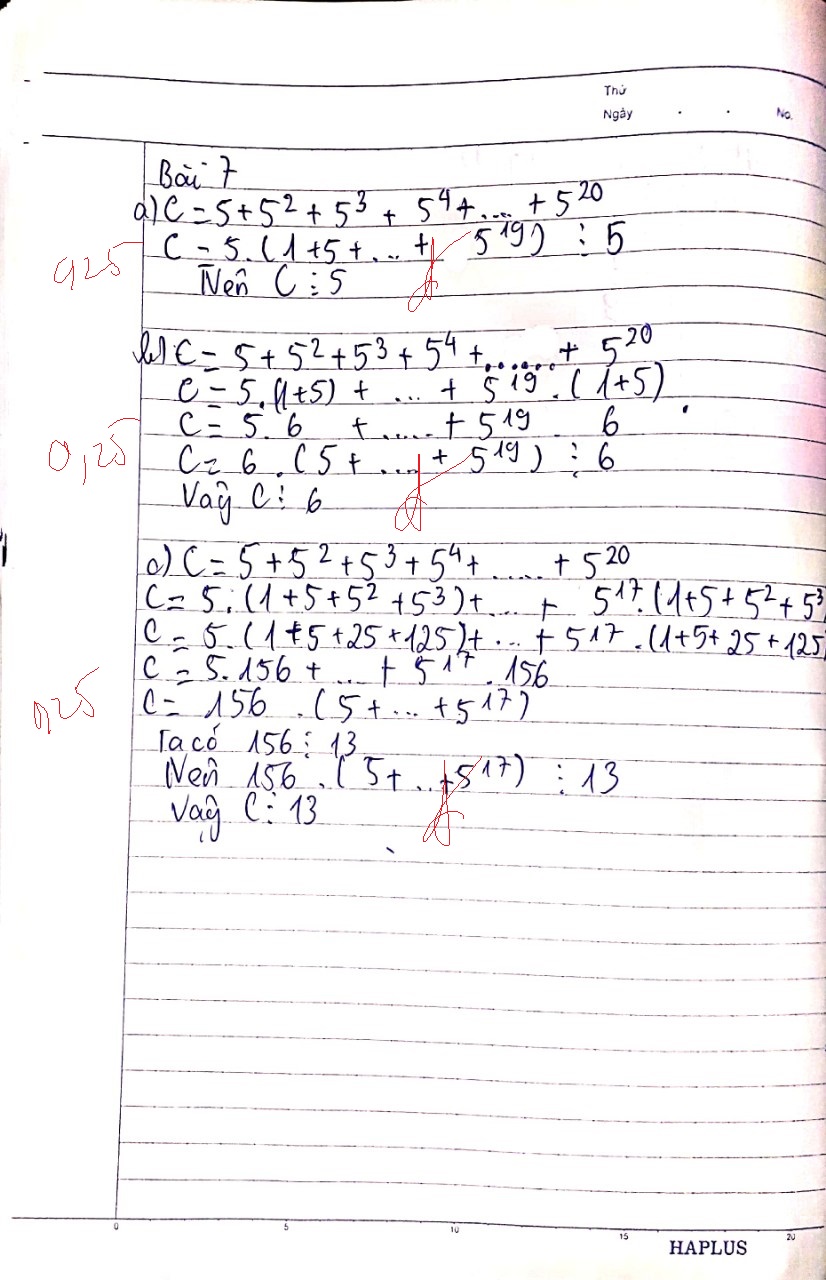 Thứ
Ngày . . No.
Bài 7
a) C = 5 + 5² + 5³ + 5⁴ + ... + 5²⁰
C = 5.(1+5+...+ 5¹⁹) ⋮ 5
0,25
Nên C ⋮ 5
b) C = 5 + 5² + 5³ + 5⁴ + ....... + 5²⁰
C = 5.(1+5) + ... + 5¹⁹.(1+5)
C = 5.6 + ..... + 5¹⁹ 6
0,25
C = 6.(5+...+ 5¹⁹) ⋮ 6
Vậy C ⋮ 6
c) C = 5 + 5² + 5³ + 5⁴ + ..... + 5²⁰
C = 5.(1+5+5²+5³)+ ... + 5¹⁷.(1+5+5²+5³
C = 5.(1+5+25+125)+ ... + 5¹⁷.(1+5+25+125
C = 5.156 + ... + 5¹⁷.156
0,25
C = 156 .(5+...+5¹⁷)
Ta có 156 ⋮ 13
Nên 156 .(5+...+5¹⁷) ⋮ 13
Vậy C ⋮ 13
0 5 10 15 20
HAPLUS